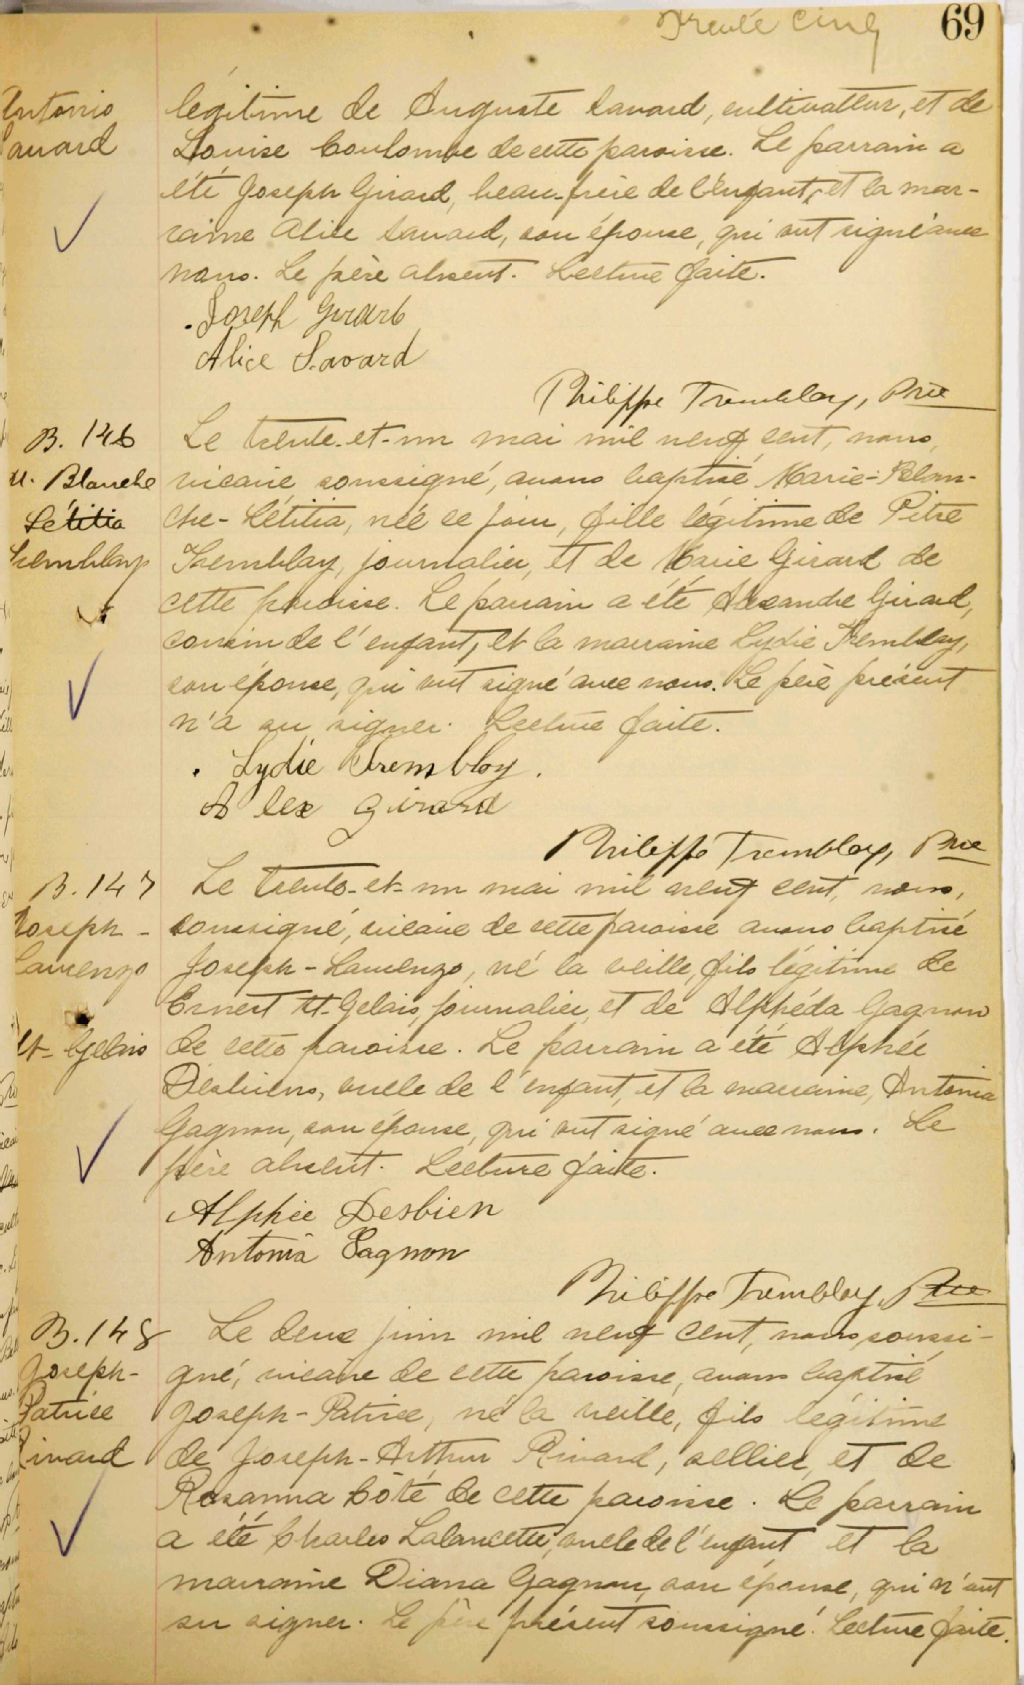 Trente cinq
69
Antonio
Savard
légitime de Auguste Savard, cultivateur, et de
Louise Coulombe de cette paroisse. Le parrain a
été Joseph Girard, beau-frère de l'enfant, et la mar-
raine Alice Savard, son épouse, qui ont signé avec
nous. Le père absent. Lecture faite.
Joseph Girard
Alice Savard
Philippe Tremblay, Ptre
B. 146
M. Blanche
Létitia
Tremblay
Le trente-et-un mai mil neuf cent, nous,
vicaire soussigné, avons baptisé Marie-Blan-
che-Létitia, née ce jour, fille légitime de Pitre
Tremblay, journalier, et de Marie Girard de
cette paroisse. Le parrain a été Alexandre Girard,
cousin de l'enfant, et la marraine Lydie Tremblay,
son épouse, qui ont signé avec nous. Le père présent
n'a su signer. Lecture faite.
Lydie Tremblay.
Alex Girard
Philippe Tremblay, Ptre
B. 147
Joseph-
Laurenzo
St-Gelais
Le trente-et-un mai mil neuf cent, nous,
soussigné, vicaire de cette paroisse avons baptisé
Joseph-Laurenzo, né la veille, fils légitime de
Ernest St-Gelais, journalier, et de Alphéda Gagnon
de cette paroisse. Le parrain a été Alphée
Desbiens, oncle de l'enfant, et la marraine, Antonia
Gagnon, son épouse, qui ont signé avec nous. Le
père absent. Lecture faite.
Alphée Desbien
Antonia Gagnon
Philippe Tremblay, Ptre
B. 148
Joseph-
Patrice
Rivard
Le deux juin mil neuf cent, nous, soussi-
gné, vicaire de cette paroisse, avons baptisé
Joseph-Patrice, né la veille, fils légitime
de Joseph-Arthur Rivard, sellier, et de
Rosanna Côté de cette paroisse. Le parrain
a été Charles Lalancette, oncle de l'enfant et la
marraine Diana Gagnon, son épouse, qui n'ont
su signer. Le père présent soussigné. Lecture faite.